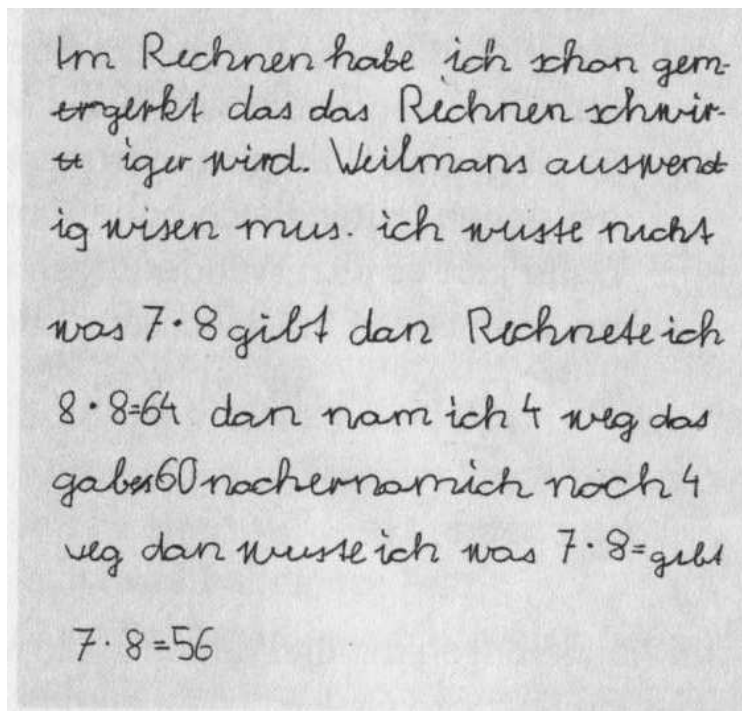 Im Rechnen habe ich schon gem-
ergerkt das das Rechnen schwir-
iger wird. Weilmans auswend
ig wisen mus. ich wuste nicht
was 7·8 gibt dan Rechnete ich
8·8=64 dan nam ich 4 weg das
gabes 60 nachernamich noch 4
weg dan wusste ich was 7·8= gibt
7·8=56